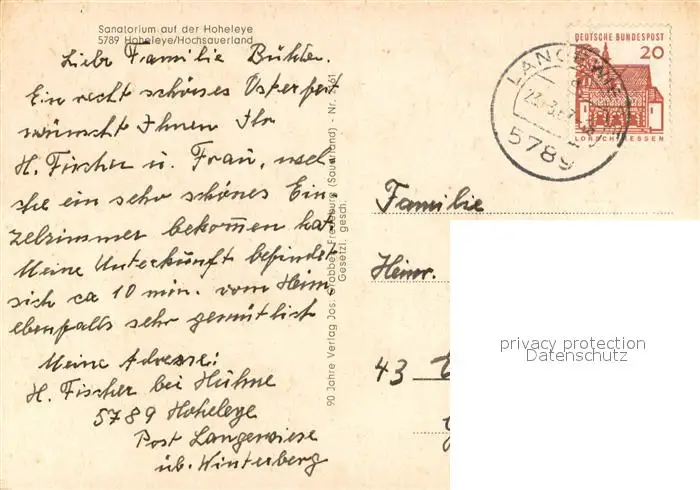 Sanatorium auf der Hoheleye
5789 Hoheleye/Hochsauerland
Liebe Familie Bühler.
Ein recht schönes Osterfest
wünscht Ihnen Ihr
H. Fischer u. Frau, wel-
che ein sehr schönes Ein-
zelzimmer bekommen hat
Meine Unterkunft befindet
sich ca 10 min. vom Heim,
ebenfalls sehr gemütlich
Meine Adresse:
H. Fischer bei Hühne
5789 Hoheleye
Post Langewiese
üb. Winterberg
90 Jahre Verlag Jos. Grobbel, Fredeburg (Sauerland) - Nr.
Gesetzl. gesch.
DEUTSCHE BUNDESPOST
20
LORSCH HESSEN
LANGEWI
5789
Familie
Heinr.
43
privacy protection
Datenschutz